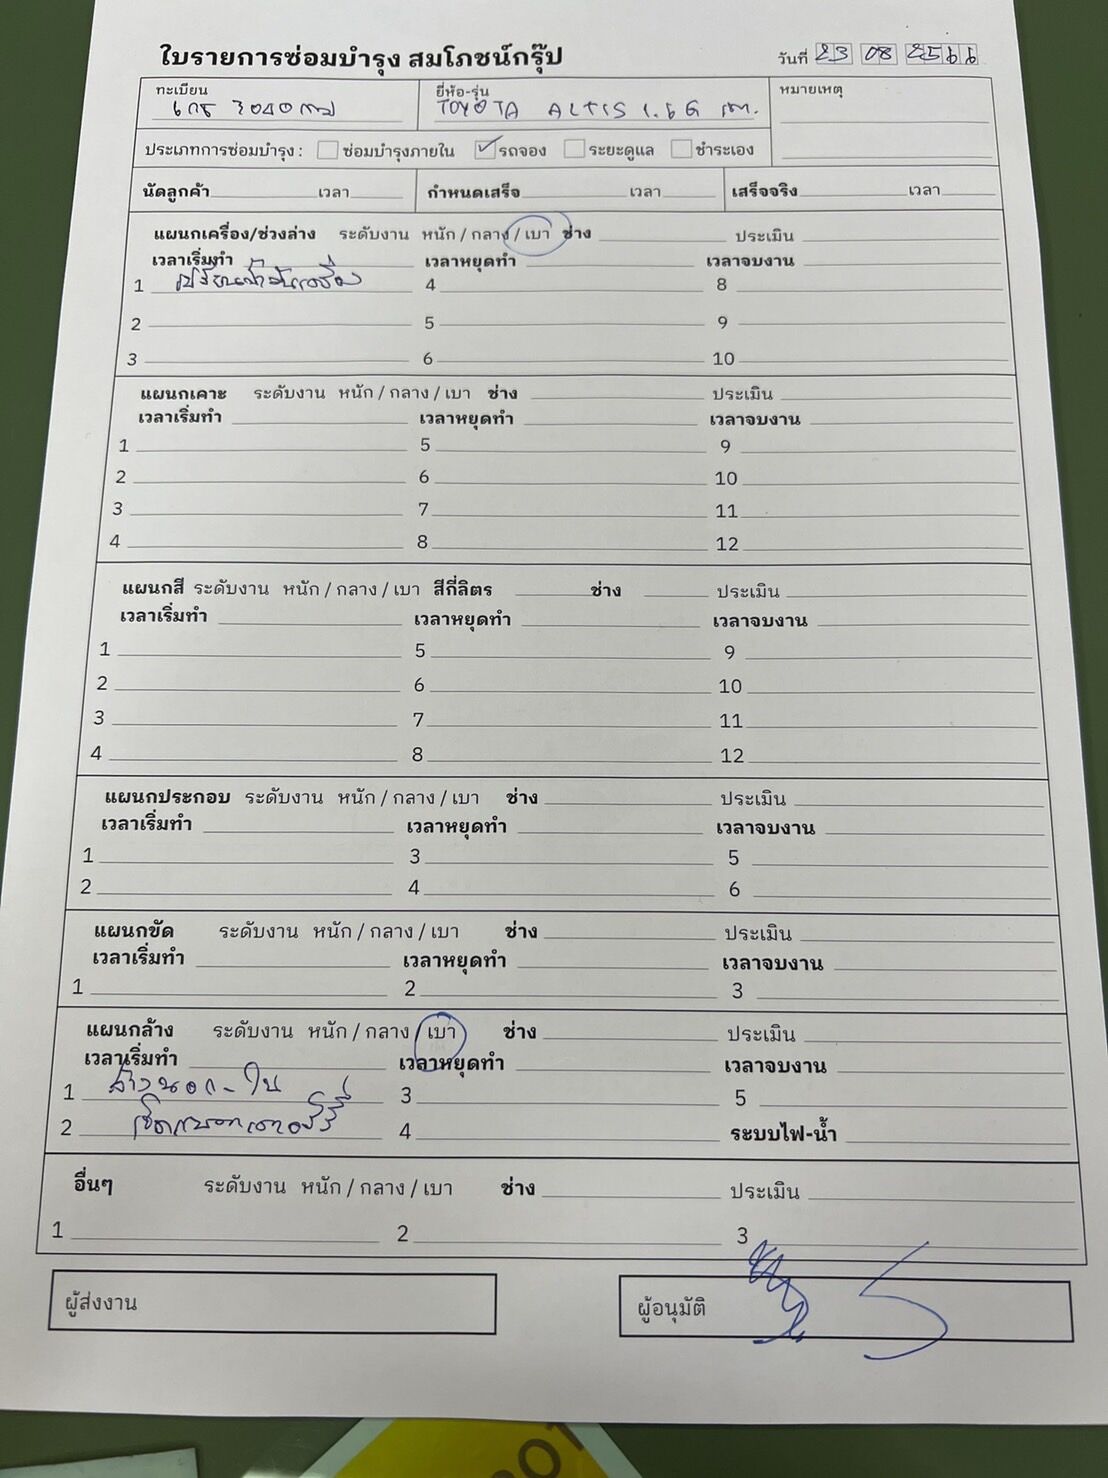 ใบรายการซ่อมบำรุง สมโภชน์กรุ๊ป
วันที่ 23 08 2566
ทะเบียน ยี่ห้อ-รุ่น หมายเหตุ
3040 กทม TOYOTA ALTIS 1.6G
ประเภทการซ่อมบำรุง : ซ่อมบำรุงภายใน รถจอง ระยะดูแล ชำระเอง
นัดลูกค้า เวลา กำหนดเสร็จ เวลา เสร็จจริง เวลา
แผนกเครื่อง/ช่วงล่าง ระดับงาน หนัก / กลาง / เบา ช่าง ประเมิน
เวลาเริ่มทำ เวลาหยุดทำ เวลาจบงาน
1 เปลี่ยนน้ำมันเครื่อง 4 8
2 5 9
3 6 10
แผนกเคาะ ระดับงาน หนัก / กลาง / เบา ช่าง ประเมิน
เวลาเริ่มทำ เวลาหยุดทำ เวลาจบงาน
1 5 9
2 6 10
3 7 11
4 8 12
แผนกสี ระดับงาน หนัก / กลาง / เบา สีกี่ลิตร ช่าง ประเมิน
เวลาเริ่มทำ เวลาหยุดทำ เวลาจบงาน
1 5 9
2 6 10
3 7 11
4 8 12
แผนกประกอบ ระดับงาน หนัก / กลาง / เบา ช่าง ประเมิน
เวลาเริ่มทำ เวลาหยุดทำ เวลาจบงาน
1 3 5
2 4 6
แผนกขัด ระดับงาน หนัก / กลาง / เบา ช่าง ประเมิน
เวลาเริ่มทำ เวลาหยุดทำ เวลาจบงาน
1 2 3
แผนกล้าง ระดับงาน หนัก / กลาง / เบา ช่าง ประเมิน
เวลาเริ่มทำ เวลาหยุดทำ เวลาจบงาน
1 ล้างนอก-ใน 3 5
2 เช็คแบตเตอร์รี่ 4 ระบบไฟ-น้ำ
อื่นๆ ระดับงาน หนัก / กลาง / เบา ช่าง ประเมิน
1 2 3
ผู้ส่งงาน ผู้อนุมัติ